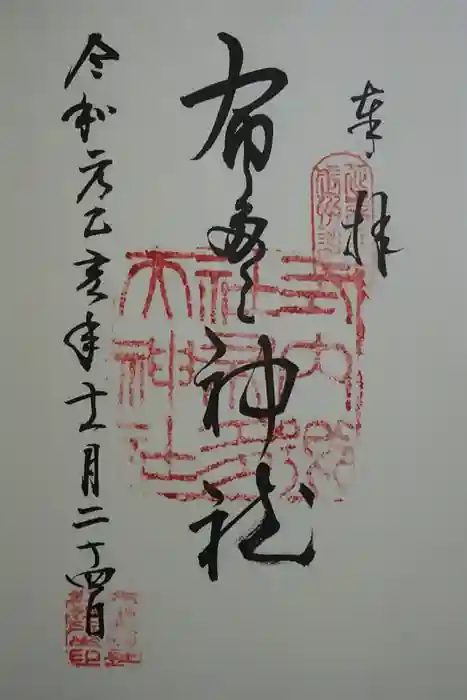 奉拝
布多天神社
式内郷
社布多
天神社
令和元己亥年十一月二十四日